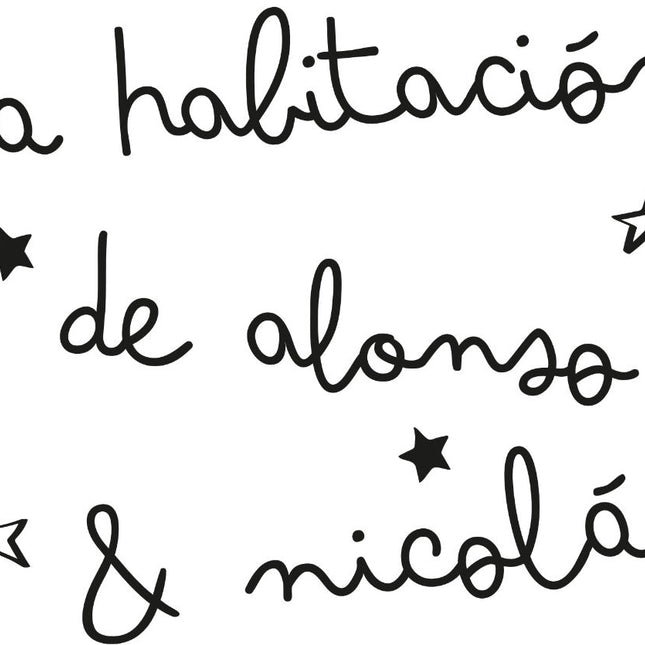 a habitació
de alonso
& nicolá